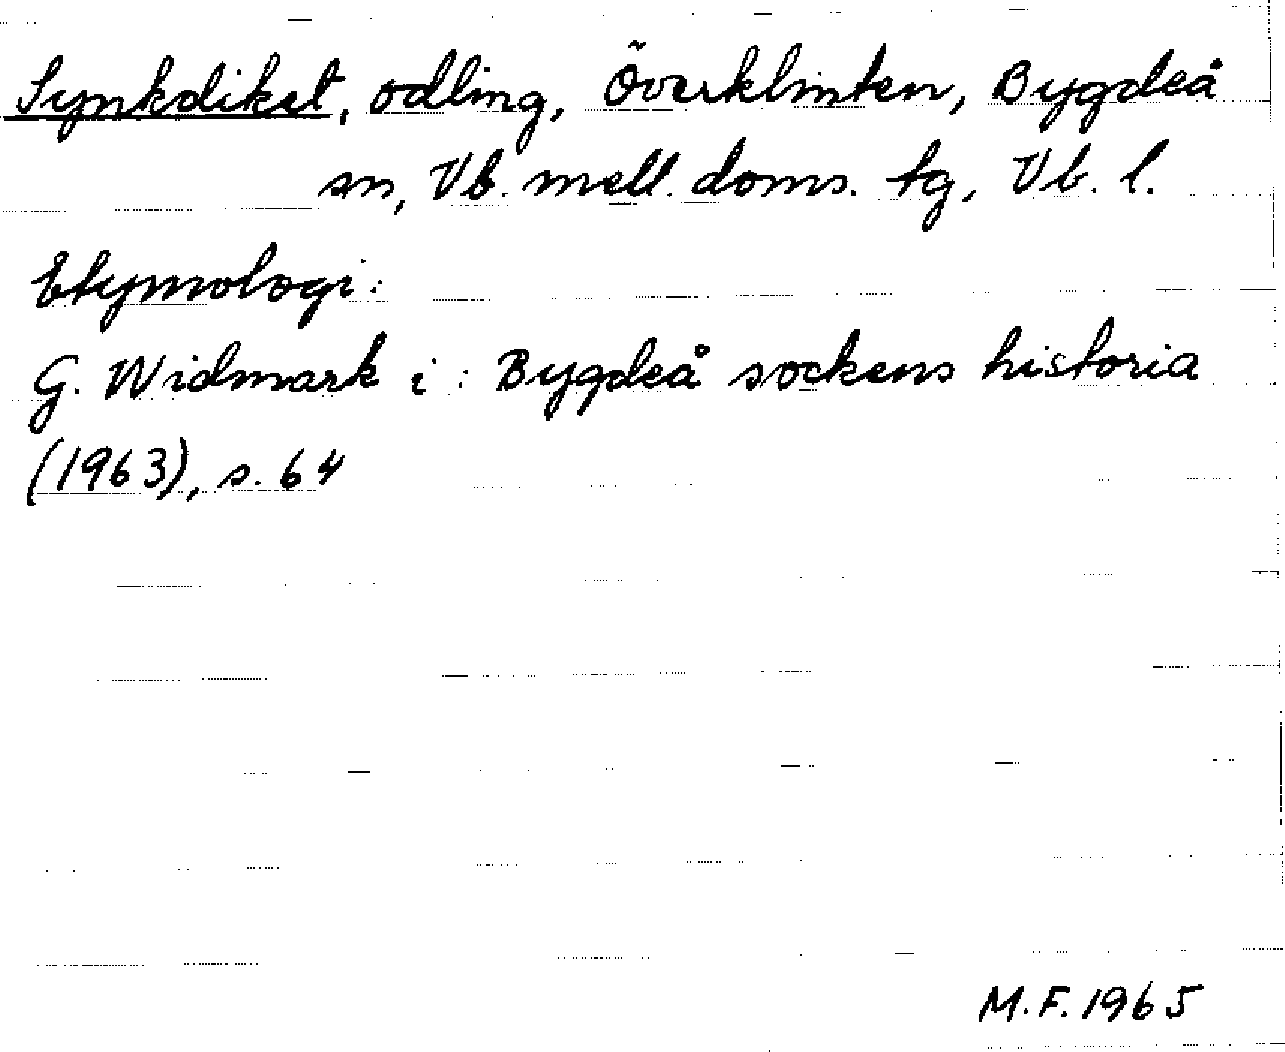 Synkdiket, odling, Överklinten, Bygdeå
sn, Vb. mell. doms. tg, Vb. l.
Etymologi:
G. Widmark i: Bygdeå sockens historia
(1963), s. 64
M.F. 1965